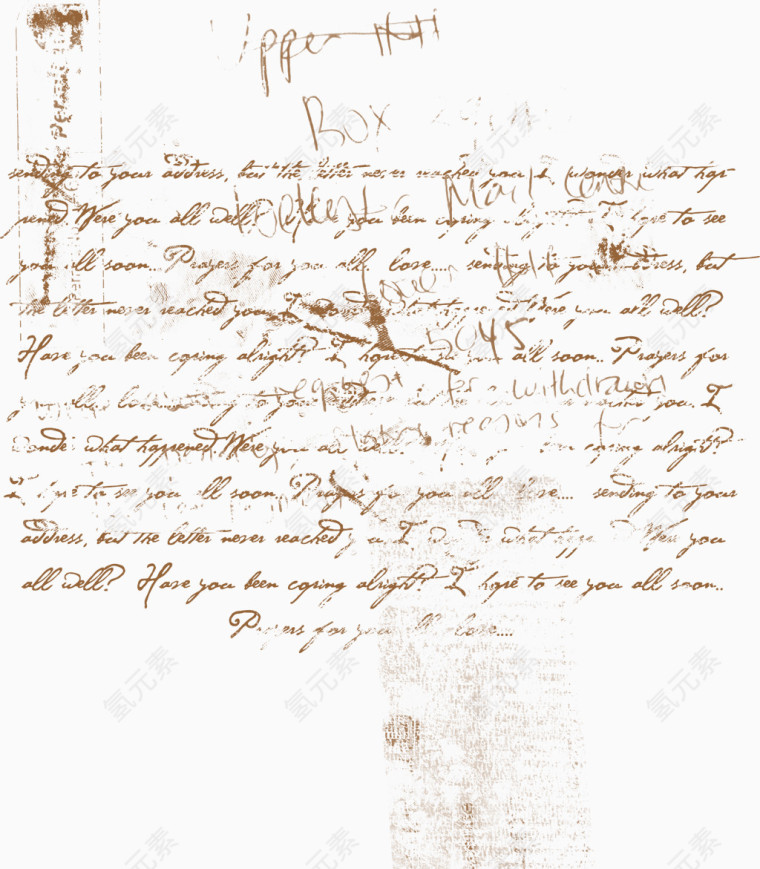 Upper Hutt
Box
sending to your address, but the letter never reached you. I wonder what hap-
pened. Were you all well? Have you been coping alright? I hope to see
Mail Centre
you all soon.. Prayers for you all. love.... sending to your address, but
Upper Hutt
the letter never reached you. I wonder what happened. Were you all well?
5045
Have you been coping alright? I hope to see you all soon.. Prayers for
withdrawn
you all. love.... sending to your address, but the letter never reached you. I
reasons for
wonder what happened. Were you all well? Have you been coping alright?
I hope to see you all soon. Prayers for you all. love.... sending to your
address, but the letter never reached you. I wonder what happened. Were you
all well? Have you been coping alright? I hope to see you all soon..
Prayers for you all. love....
氢元素